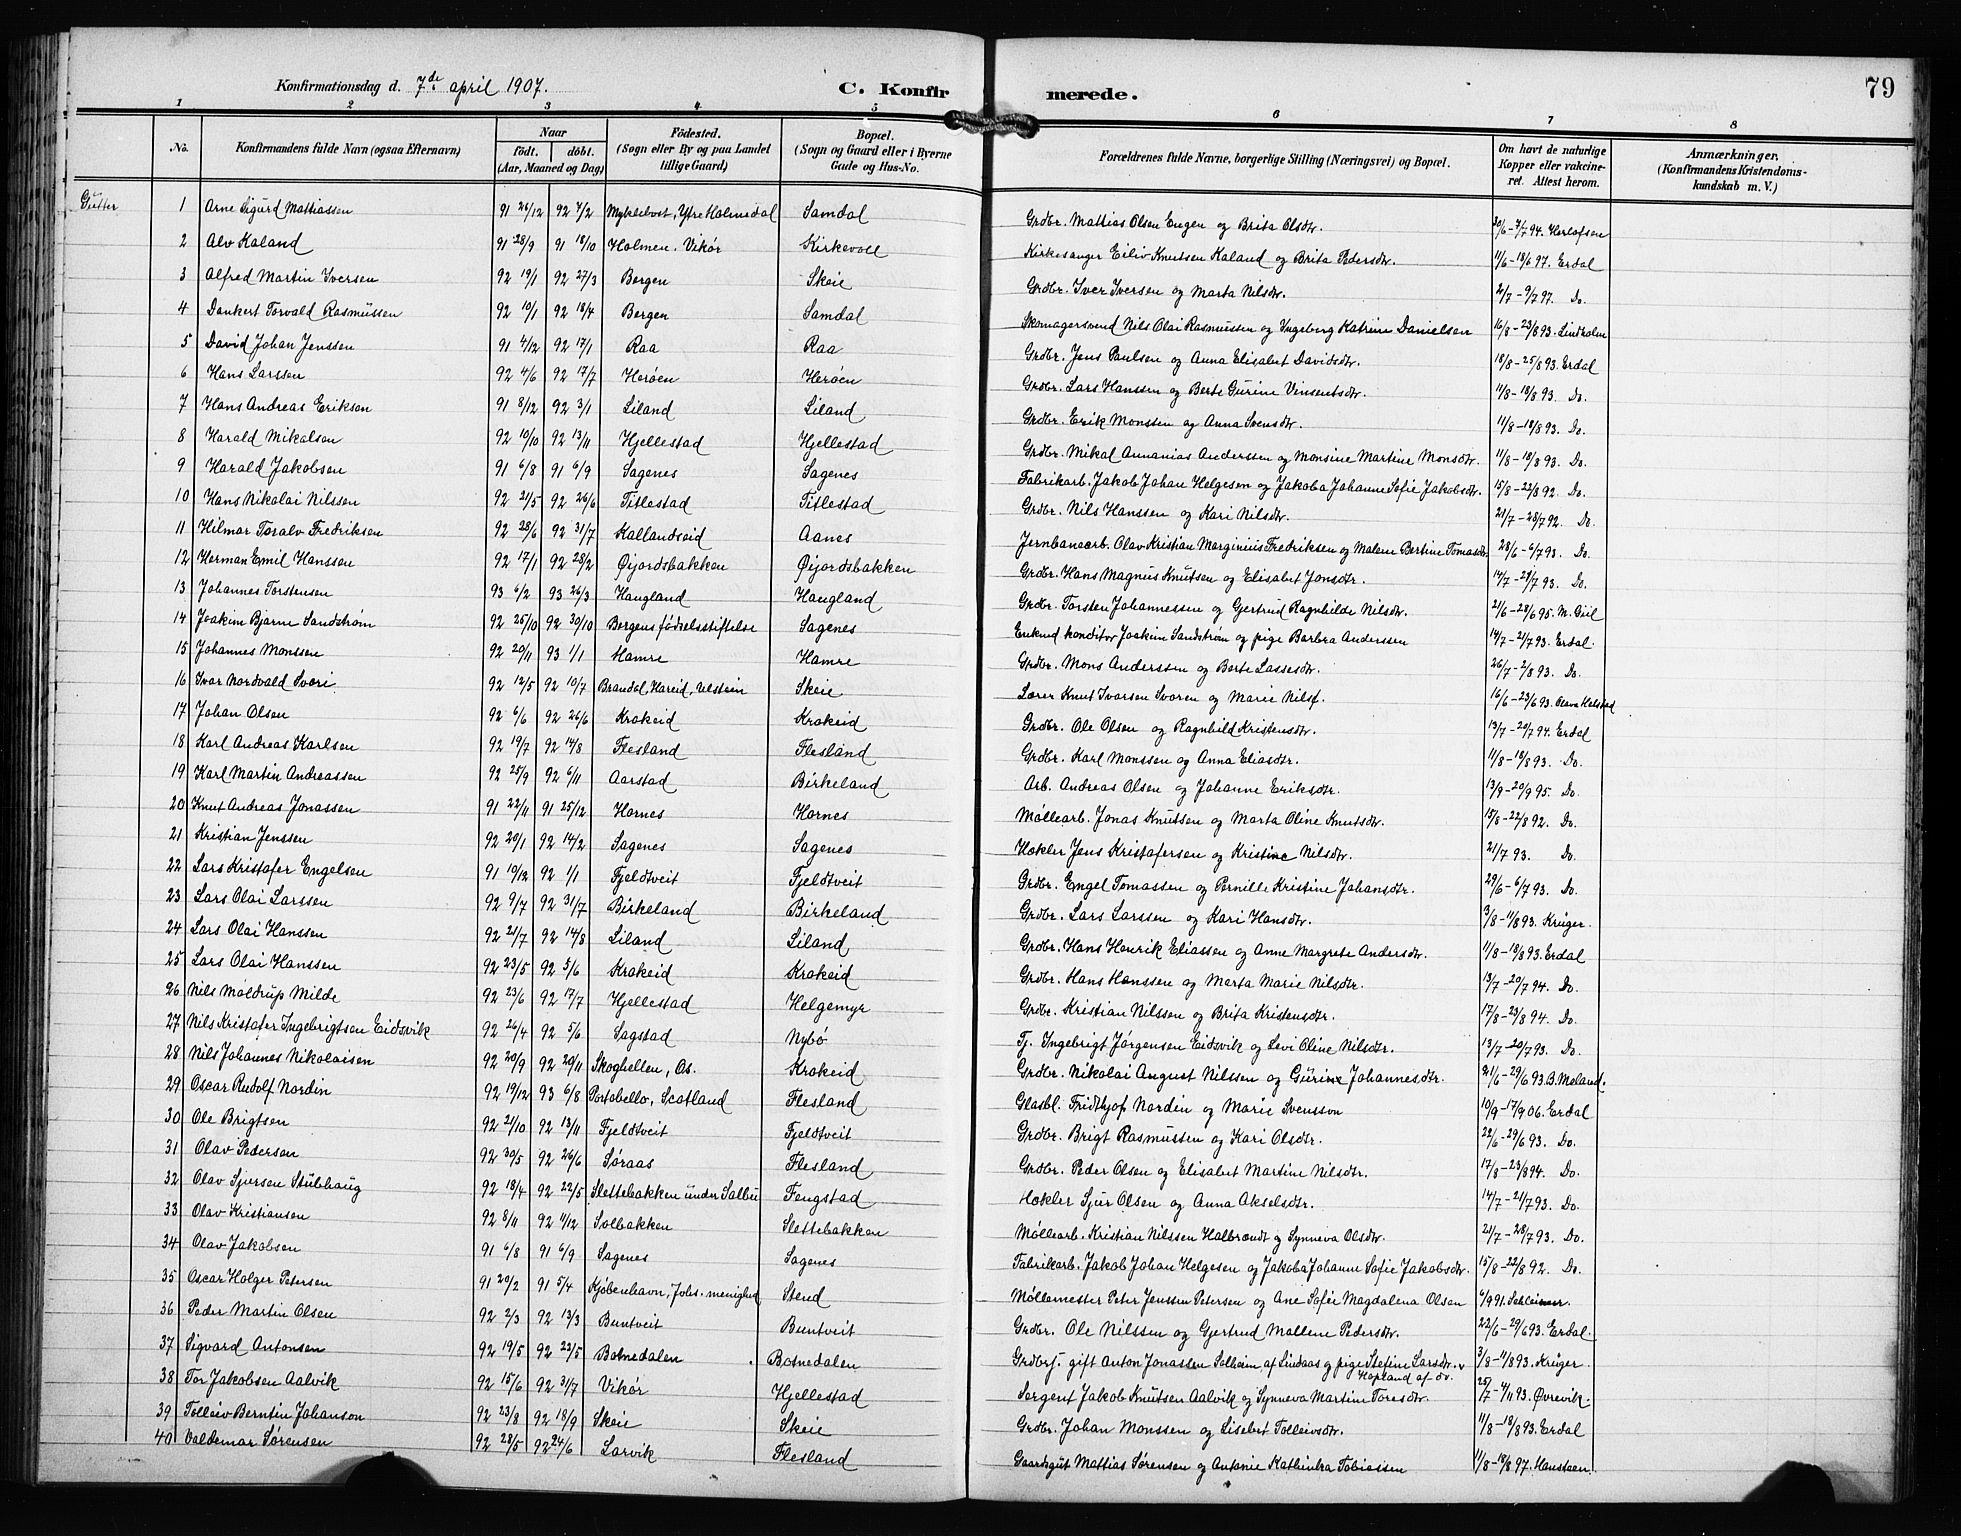 Konfirmationsdag d. 7de april 1907.
C. Konfirmerede.
79
1 2 3 4 5 6 7 8
No. Konfirmandens fulde Navn (ogsaa Efternavn) Naar födt. döbt. (Aar, Maaned og Dag) Födested. (Sogn eller By og paa Landet tillige Gaard) Bopæl. (Sogn og Gaard eller i Byerne Gade og Hus-No. Forældrenes fulde Navne, borgerlige Stilling (Næringsvei) og Bopæl. Om havt de naturlige Kopper eller vakcineret. Attest herom. Anmærkninger. (Konfirmandens Kristendomskundskab m. V.)
Gutter 1 Arne Sigurd Mattiassen 91 26/12 92 7/2 Myklebost, Ytre Holmedal Samdal Grdbr. Mattias Olsen Engen og Brita Olsdtr. 30/6-7/7 94. Herlofsen
2 Alv Kaland 91 28/9 91 18/10 Holmen. Vikør Kirkevoll Kirkesanger Eiliv Knutsen Kaland og Brita Pedersdtr. 11/6-18/6 97. Erdal
3 Alfred Martin Iversen 92 19/1 92 27/3 Bergen Skeie Grdbr. Iver Iversen og Marta Nilsdtr. 2/7-9/7 97. Do.
4 Dankert Torvald Rasmussen 92 10/1 92 18/4 Bergen Samdal Skomagersvend Nils Olai Rasmussen og Ingeborg Katrine Danielsen 16/8-23/8 93. Lindholm
5 David Johan Jenssen 91 4/12 92 17/1 Raa Raa Grdbr. Jens Paulsen og Anna Elisabet Davidsdtr. 18/8-25/8 93. Erdal
6 Hans Larssen 92 4/6 92 17/7 Herøen Herøen Grdbr. Lars Hanssen og Berte Gurine Vinsentsdtr. 11/8-18/8 93. Do.
7 Hans Andreas Eriksen 91 8/12 92 3/1 Liland Liland Grdbr. Erik Monssen og Anna Svensdtr. 11/8-18/8 93. Do.
8 Harald Mikalsen 92 10/10 92 13/11 Hjellestad Hjellestad Grdbr. Mikal Annanias Anderssen og Monsine Martine Monsdtr. 11/8-18/8 93. Do.
9 Harald Jakobsen 91 6/8 91 6/9 Sagenes Sagenes Fabrikarb. Jakob Johan Helgesen og Jakoba Johanne Sofie Jakobsdtr. 15/8-22/8 92. Do.
10 Hans Nikolai Nilssen 92 21/5 92 26/6 Titlestad Titlestad Grdbr. Nils Hanssen og Kari Nilsdtr. 21/7-28/7 92. Do.
11 Hilmar Toralv Fredriksen 92 28/6 92 31/7 Kallandseid Aanes Jernbanearb. Olav Kristian Marginius Fredriksen og Malene Bertine Tomasdtr. 28/6-6/7 93. Do.
12 Herman Emil Hanssen 92 17/1 92 28/2 Øijordsbakken Øijordsbakken Grdbr. Hans Magnus Knutsen og Elisabet Jonsdtr. 14/7-21/7 93. Do.
13 Johannes Torstensen 93 6/2 93 26/3 Haugland Haugland Grdbr. Torsten Johannessen og Gjertrud Ragnhilde Nilsdtr. 21/6-28/6 95.
14 Joakim Bjarne Sandstrøm 92 25/10 92 30/10 Bergens fødselsstiftelse Sagenes Enkmd konditor Joakim Sandstrøm og pige Barbra Anderssen 14/7-21/7 93. Erdal.
15 Johannes Monssen 92 20/11 93 1/1 Hamre Hamre Grdbr. Mons Anderssen og Berte Lassesdtr. 26/7-2/8 93. Do.
16 Ivar Nordvald Svori 92 12/5 92 10/7 Brandal, Hareid, Ulstein Skeie Lærer Knut Ivarsen Svoren og Marie Nilsf. 16/6-23/6 93. Olava Helstad
17 Johan Olsen 92 6/6 92 26/6 Krokeid Krokeid Grdbr. Ole Olsen og Ragnhild Kristensdtr. 13/7-20/7 94. Erdal
18 Karl Andreas Karlsen 92 19/7 92 14/8 Flesland Flesland Grdbr. Karl Monssen og Anna Eliasdtr. 11/8-18/8 93. Do.
19 Karl Martin Andreassen 92 25/9 92 6/11 Aarstad Birkeland Arb. Andreas Olsen og Johanne Eriksdtr. 13/9-20/9 95. Do.
20 Knut Andreas Jonassen 91 22/11 91 25/12 Hornes Hornes Møllearb. Jonas Knutsen og Marta Oline Knutsdtr. 15/8-22/8 92. Do.
21 Kristian Jenssen 92 20/1 92 14/2 Sagenes Sagenes Høkler Jens Kristafersen og Kristine Nilsdtr. 21/7 93. Do.
22 Lars Kristafer Engelsen 91 19/12 92 1/1 Fjeldtveit Fjeldtveit Grdbr. Engel Tomassen og Pernille Kristine Johansdtr. 29/6-6/7 93. Do.
23 Lars Olai Larssen 92 9/7 92 31/7 Birkeland Birkeland Grdbr. Lars Larssen og Kari Hansdtr. 3/8-11/8 93. Krüger.
24 Lars Olai Hanssen 92 21/7 92 14/8 Liland Liland Grdbr. Hans Henrik Eliassen og Anne Margrete Andersdtr. 11/8-18/8 93. Erdal
25 Lars Olai Hanssen 92 23/5 92 5/6 Krokeid Krokeid Grdbr. Hans Hanssen og Marta Marie Nilsdtr. 13/7-20/7 94. Do.
26 Nils Moldrup Milde 92 23/6 92 17/7 Hjellestad Helgemyr Grdbr. Kristian Nilssen og Brita Kristensdtr. 17/8-23/8 94. Do.
27 Nils Kristafer Ingebrigtsen Eidsvik 92 26/4 92 5/6 Sagstad Nybø Tj. Ingebrigt Jørgensen Eidsvik og Levi Oline Nilsdtr. 13/7-20/7 93. Do.
28 Nils Johannes Nikolaisen 92 20/9 92 20/11 Skoghellen, Os. Krokeid Grdbr. Nikolai August Nilssen og Gurine Johannesdtr. 21/6-29/6 93. B. Meland.
29 Oscar Rudolf Nordin 92 19/12 93 6/8 Portobello, Scotland Flesland Glasbl. Fridthjof Nordin og Marie Svensson 10/9-17/9 06. Erdal
30 Ole Brigtsen 92 2/10 92 13/11 Fjeldtveit Fjeldtveit Grdbr. Brigt Rasmussen og Kari Olsdtr. 22/6-29/6 93. Do.
31 Olav Pedersen 92 30/5 92 26/6 Søraas Flesland Grdbr. Peder Olsen og Elisabet Martine Nilsdtr. 17/8-23/8 94. Do.
32 Olav Sjursen Stubhaug 92 18/4 92 22/5 Slettebakken under Salbu Fengstad Høkler Sjur Olsen og Anna Akselsdtr. 14/7-21/7 93. Do.
33 Olav Kristiansen 92 8/11 92 11/12 Solbakken Slettebakken Møllearb. Kristian Nilssen Halbrendt og Synneva Olsdtr. 21/7-28/7 93. Do.
34 Olav Jakobsen 91 6/8 91 6/9 Sagenes Sagenes Fabrikarb. Jakob Johan Helgesen og Jakoba Johanne Sofie Jakobsdtr. 15/8-22/8 92. Do.
35 Oscar Holger Petersen 91 20/2 91 5/4 Kjøbenhavn, Johs. menighed Stend Møllemester Peter Jenssen Petersen og Ane Sofie Magdalena Olsen 6/9 91.
36 Peder Martin Olsen 92 2/3 92 13/3 Buntveit Buntveit Grdbr. Ole Nilssen og Gjertrud Mallene Pedersdtr. 22/6-29/6 93. Erdal.
37 Sigvard Antonsen 92 19/5 92 22/5 Botnedalen Botnedalen Grdbrs. gift Anton Jonassen Solheim af Lindaas og pige Stefine Larsdtr. Hopland af do. 3/8-11/8 93. Krüger
38 Tor Jakobsen Aalvik 92 15/6 92 31/7 Vikør Hjellestad Sergent Jakob Knutsen Aalvik og Synneva Martine Toresdtr. 25/7-4/11 93. Øvrevik
39 Tolleiv Berntin Johanson 92 23/8 92 18/9 Skeie Skeie Grdbr. Johan Monssen og Lisebet Tolleivsdtr. 11/8-18/8 93. Erdal
40 Valdemar Sørensen 92 28/5 92 24/6 Larvik Flesland Gaardsgut Mattias Sørensen og Antonie Kathinka Tobiassen 11/8-18/8 97. Hansteen.